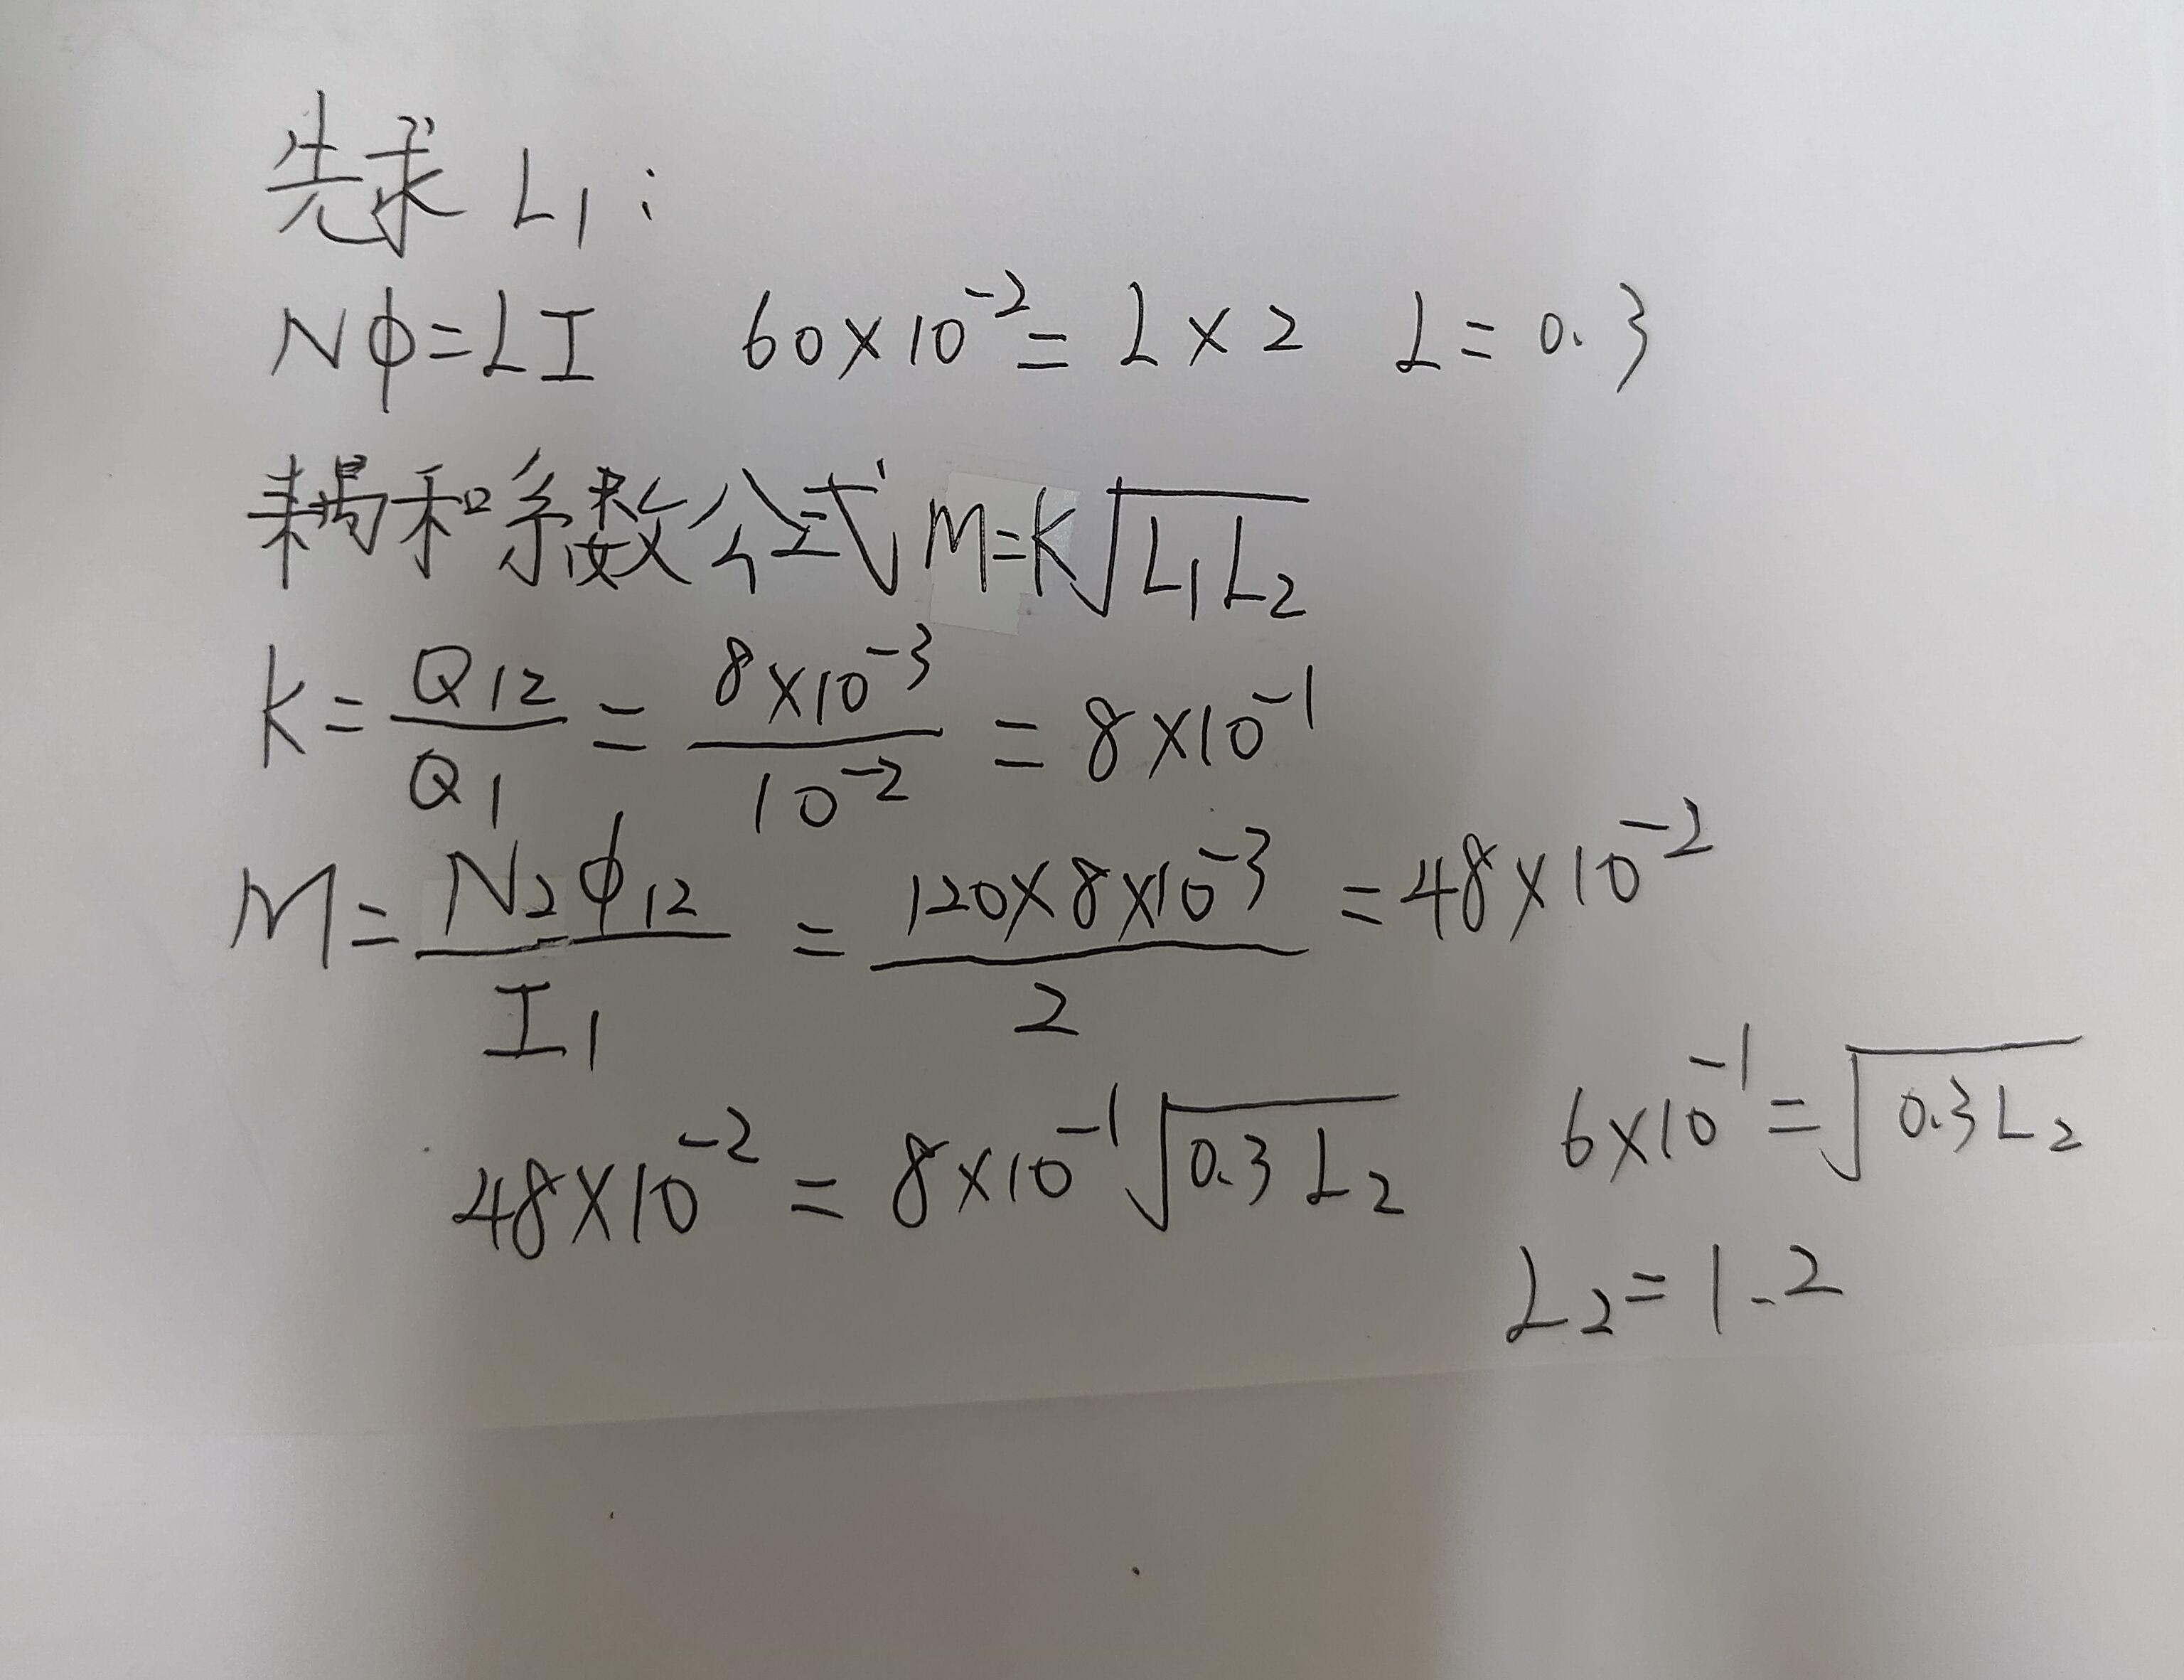 先求 L₁：
Nϕ=LI 60×10⁻²=L×2 L=0.3
耦和系数公式 M=K√L₁L₂
K=Q₁₂/Q₁=8×10⁻³/10⁻²=8×10⁻¹
M=N₂ϕ₁₂/I₁=120×8×10⁻³/2=48×10⁻²
48×10⁻²=8×10⁻¹√0.3L₂ 6×10⁻¹=√0.3L₂
L₂=1.2